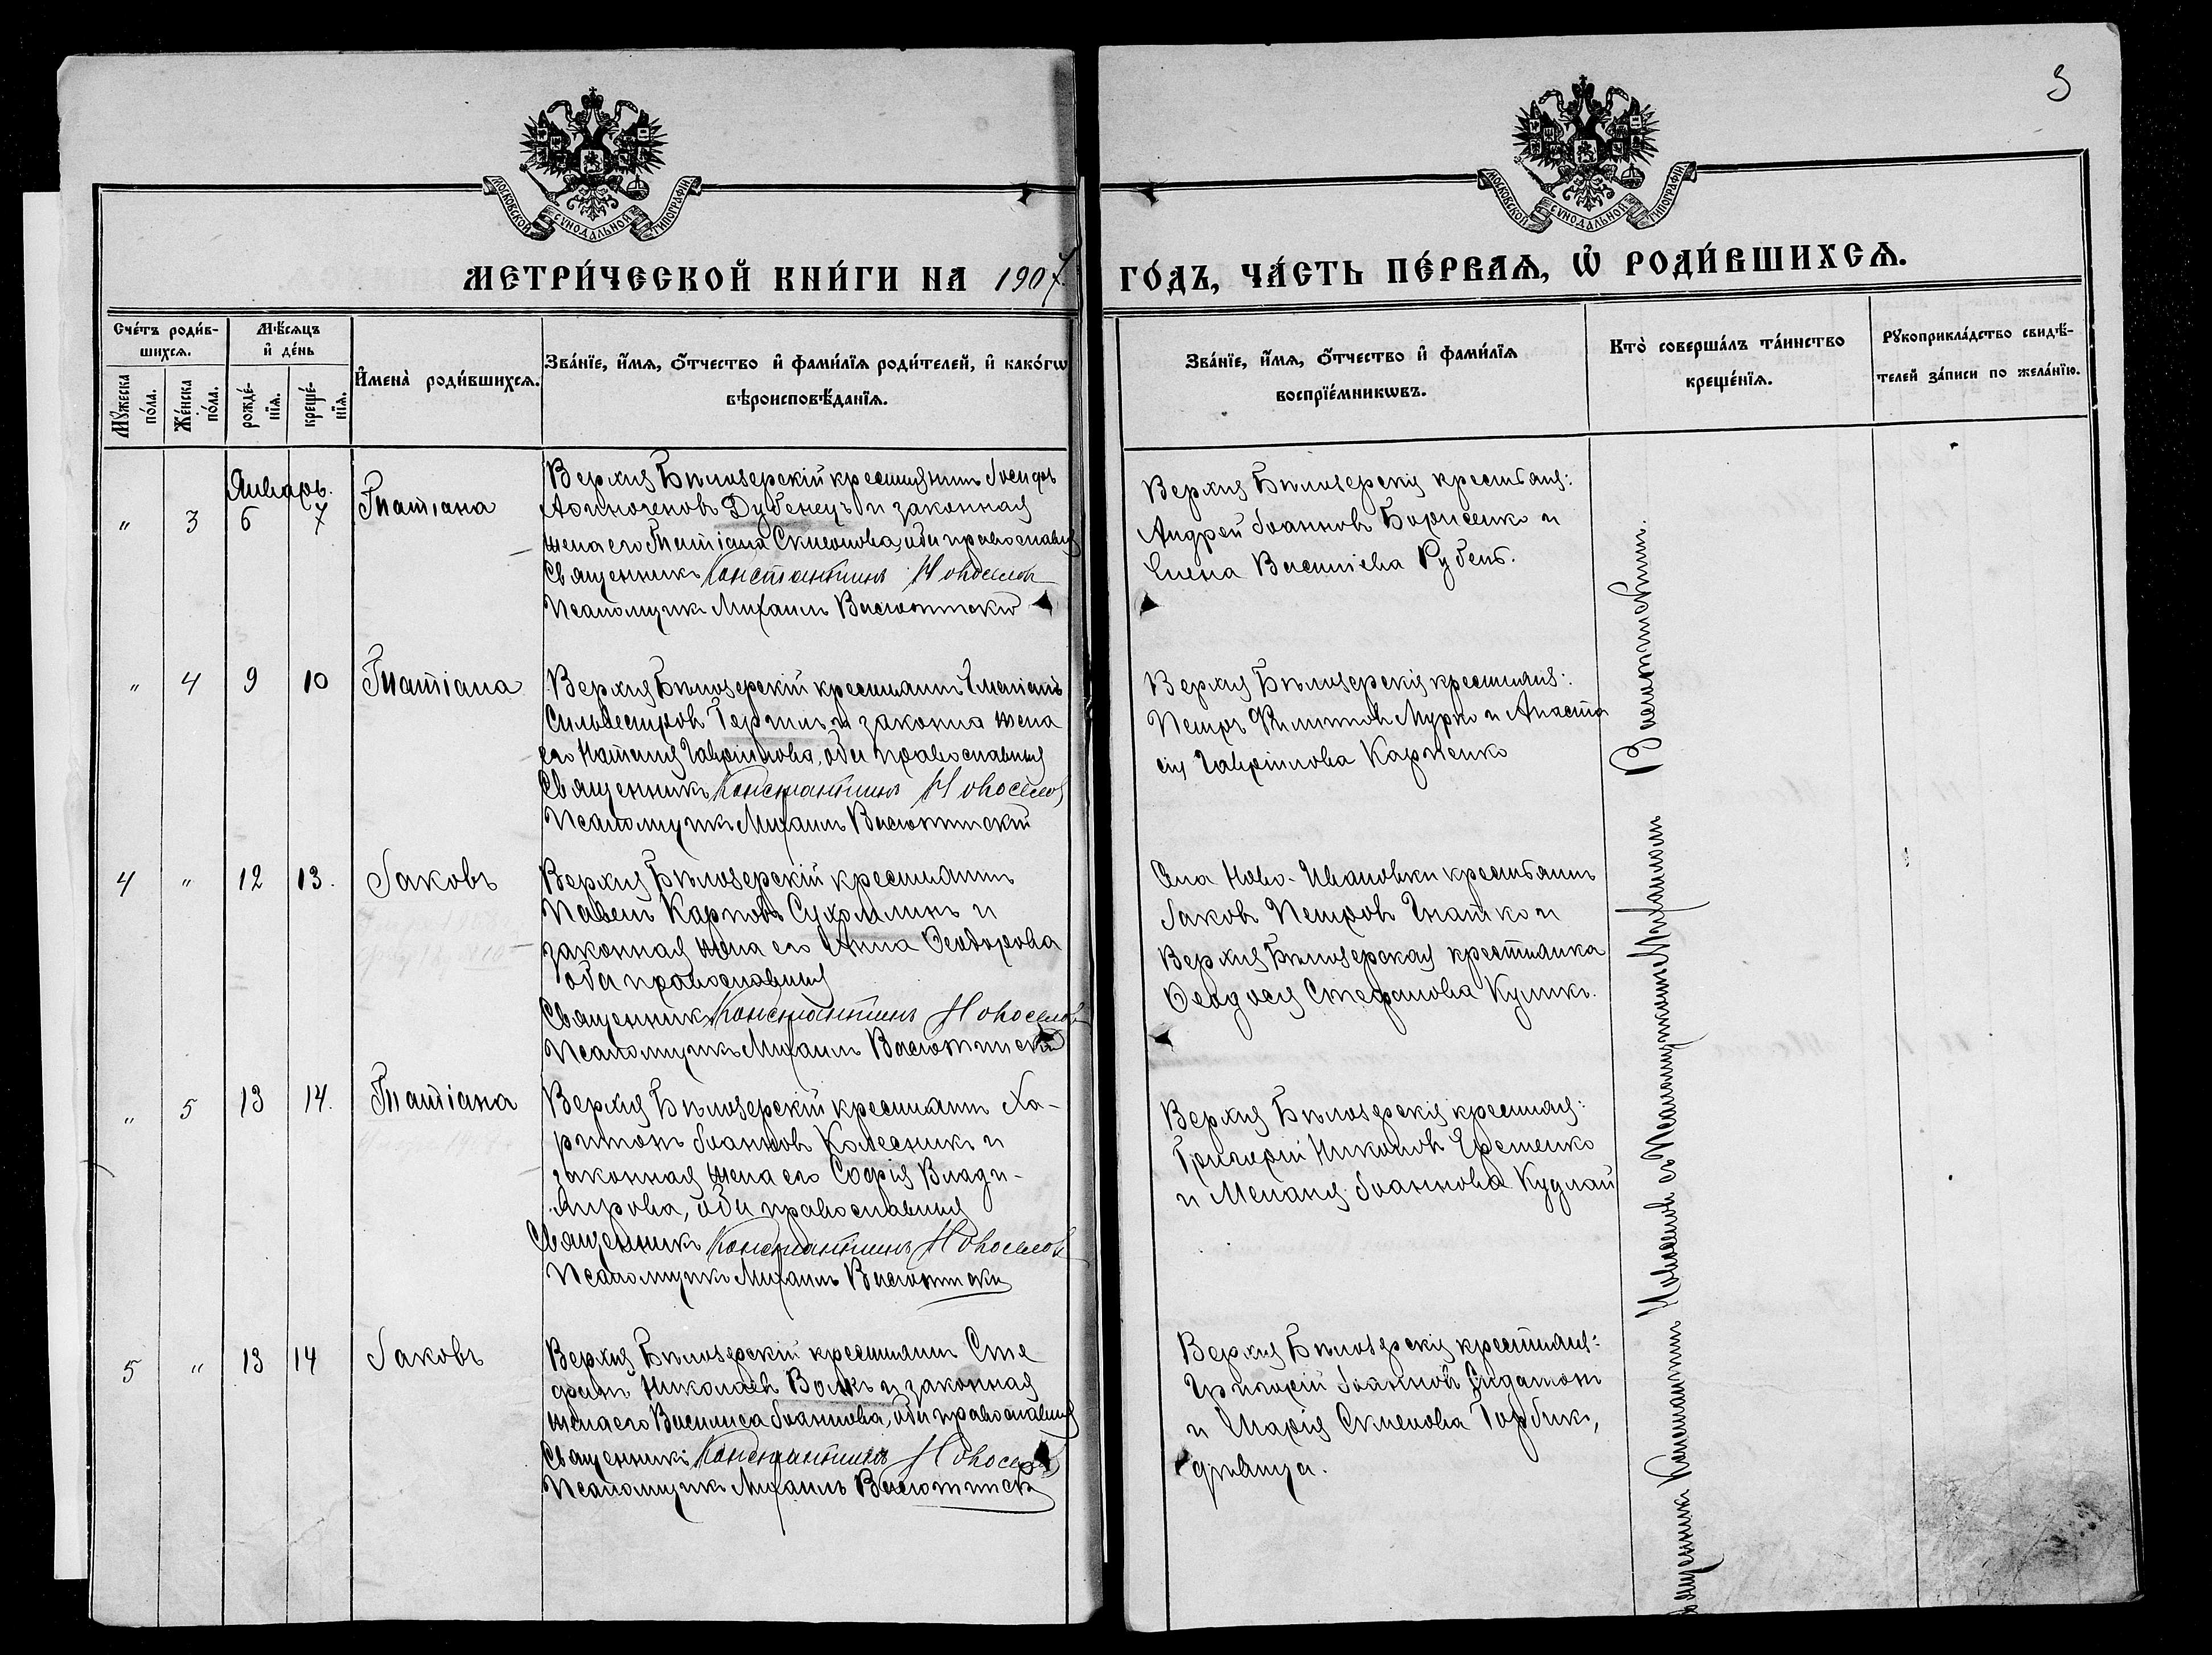 3
МОСКОВСКОЙ СѴНОДАЛЬНОЙ ТИПОГРАФІИ
МОСКОВСКОЙ СѴНОДАЛЬНОЙ ТИПОГРАФІИ
МЕТРИ́ЧЕСКОЙ КНИ́ГИ НА 1907 ГО́ДЪ, ЧА́СТЬ ПЕ́РВАѦ, Ѡ҆ РОДИ́ВШИХСѦ.
Сче́тъ роди́в-
шихсѧ.
Мꙋ́жеска по́ла.
Же́нска по́ла.
Мѣ́сѧцъ
и҆ де́нь
рожде́-
нїѧ.
креще́-
нїѧ.
И҆мена̀ роди́вшихсѧ.
Зва́нїе, и҆́мѧ, ѻ҆́тчество и҆ фами́лїѧ роди́телей, и҆ како́гѡ
вѣроисповѣ́данїѧ.
Зва́нїе, и҆́мѧ, ѻ҆́тчество и҆ фами́лїѧ
воспрїе́мникѡвъ.
Кто̀ соверша́лъ та́инство
креще́нїѧ.
Рꙋкоприкла́дство свидѣ́-
телей за́писи по жела́нїю.
Январь.
" 3 6 7 Татіана
Верхня Бѣлозерскій крестьянинъ Іосифъ
Дубенецъ и законная
жена его Татіана Симеонова, оба православныя
Священникъ Константинъ Новоселов
Псаломщикъ Михаилъ Васютинскій
Верхня Бѣлозерскія крестьяня:
Андрей Іоаннов Борисенко и
Елена Василіева Рубенъ.
" 4 9 10 Татіана
Верхня Бѣлозерскій крестьянинъ Емеліанъ
Сильвестров и законна жена
его Наталія Гавріилова, оба православныя
Священникъ Константинъ Новоселов
Псаломщикъ Михаилъ Васютинскій
Верхня Бѣлозерскія крестьяня:
Петръ Филиппов Мурко и Анаста
сія Гавріилова Карпенко
4 " 12 13. Іаковъ
Верхня Бѣлозерскій крестьянинъ
Павелъ Карповъ Сухомлинъ и
законная жена его Анна Ѳеодорова
оба православныя
Священникъ Константинъ Новоселов
Псаломщикъ Михаилъ Васютинскій
Села Ново-Ивановки крестьянинъ
Іаков Петров Гнатко и
Верхня Бѣлозерская крестьянка
Ѳеодосія Стефанова Куликъ.
" 5 13 14. Татіана
Верхня Бѣлозерскій крестьянин Ха-
ритонъ Іоаннов Колесникъ и
законная жена его Софія Влади-
мирова, оба православныя
Священникъ Константинъ Новоселов
Псаломщикъ Михаилъ Васютинскій
Верхня Бѣлозерскія крестьяня:
Григорій Николаев Еременко
и Меланія Іоаннова Кудлай
5 " 13 14 Іаковъ
Верхня Бѣлозерскій крестьянин Сте
фанъ Николаев Волкъ и законная
жена его Василиса Іоаннова, оба православныя
Священникъ Константинъ Новоселов
Псаломщикъ Михаилъ Васютинскій
Верхня Бѣлозерскія крестьяня:
Григорій Іоаннов
и Марія Симеонова Горбик,
дѣвица.
Священникъ Константинъ Новоселов съ Псаломщикомъ Михаилом Васютинским.